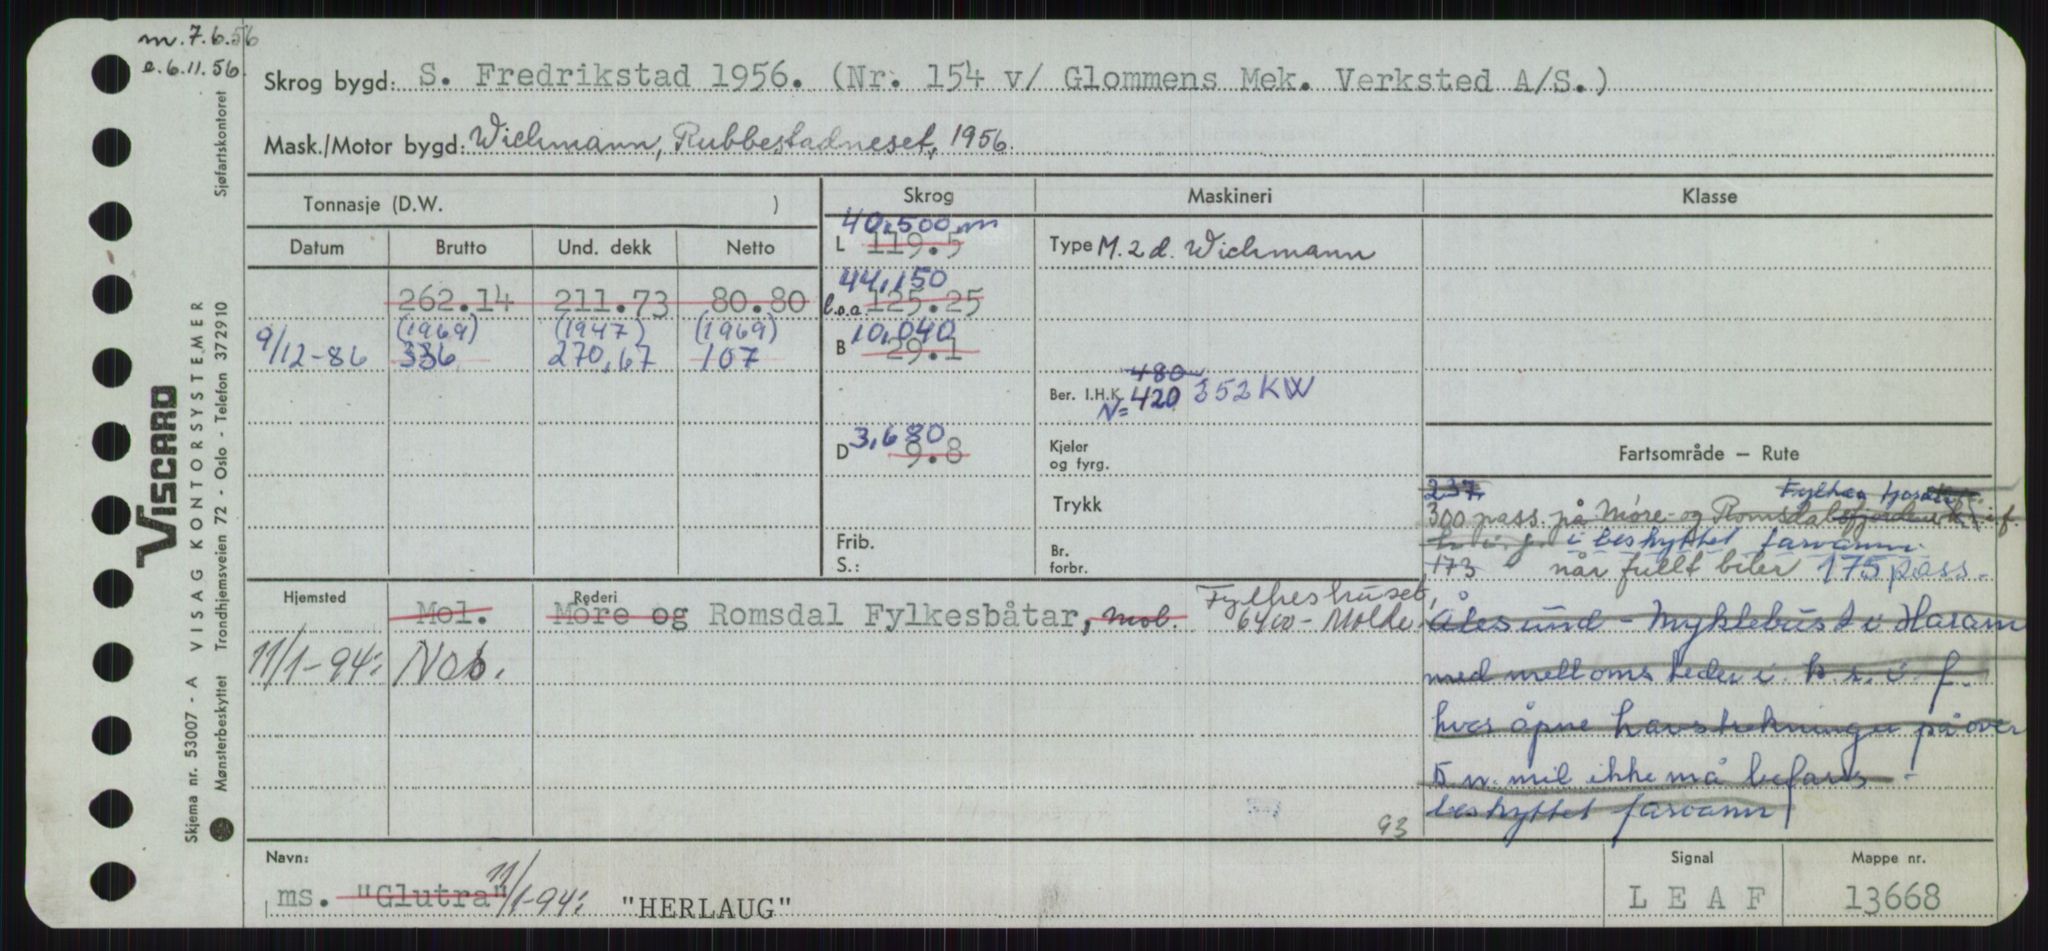 m. 7.6.56
e. 6.11.56
Skrog bygd: S. Fredrikstad 1956. (Nr. 154 v/ Glommens Mek. Verksted A/S.)
Mask./Motor bygd: Wichmann, Rubbestadneset, 1956.
Tonnasje (D.W. )
Skrog Maskineri Klasse
Datum Brutto Und. dekk Netto
40,500 m
L 119.5
Type M. 2 d. Wichmann
44,150
262.14 211.73 80.80
l.o.a. 125.25
(1969) (1947) (1969)
10,040
9/12-86 336 270,67 107
B 29.1
480
Ber. I.H.K. 420 352 KW
N=
3,680
D 9.8
Kjeler og fyrg.
Trykk
Frib.
S.:
Br. forbr.
Fartsområde – Rute
237
300 pass. på Möre- og Romsdalsfjordene i f.
i beskyttet farvann
173 når fullt biler 175 pass.
Ålesund - Myklebust i Haram
med mellomsteder i k.r. i f.
hvor åpne havstrekninger på over
5 n. mil ikke må befares -
beskyttet farvann
Hjemsted Rederi
Mol. Möre og Romsdal Fylkesbåtar, Mol. Fylkeshuset,
6400 - Molde
11/1-94: Nos.
93
Navn: Signal Mappe nr.
ms. "Glutra" 11/1-94: "HERLAUG" L E A F 13668
Viscard
VISAG KONTORSYSTEMER
Skjema nr. 53007 - A
Mønsterbeskyttet Trondhjemsveien 72 - Oslo - Telefon 372910 Sjøfartskontoret